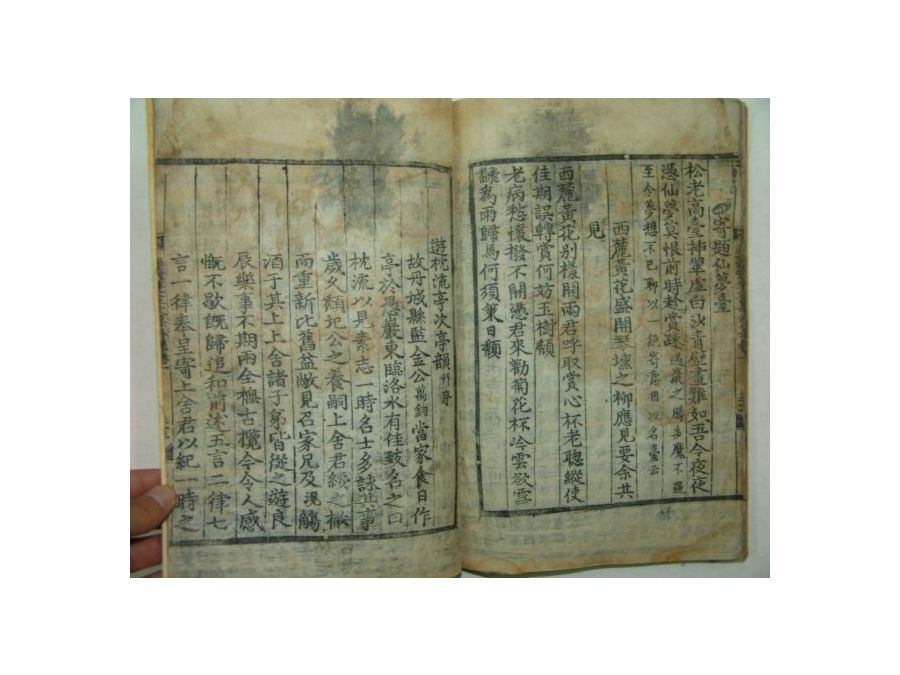 寄題仙夢臺
松老高臺揷翠虛白沙靑壁畫難如吾今夜夜
憑仙夢莫恨前時趁賞踈 遇巖之勝多魔不
至今夢想不已聊以 絶寄意因以名臺云
西麓黃花盛開 之柳應見要余共
見
西麓黃花別樣開兩君呼取賞心杯老聰縱使
佳期誤轉賞何妨玉樹頹
老病愁懷撥不開憑君來勸菊花杯吟雲欲雪
爲雨歸馬何須策日頹
遊桃流亭次亭韻 幷序
故丹城縣監金公 萬鈞 當家食日作
亭於愚巖東臨洛水有佳致名之曰
枕流以見素志一時名士多詠其事
歲久頹圮公之養嗣上舍君綏之撤
而重新比舊益敞見召家兄及 滉 觴
酒于其上上舍諸子弟皆從之遊良
辰樂事不期而全撫古攬今令人感
慨不歇旣歸追和前述五言二律七
言一律奉呈寄上舍君以紀一時之